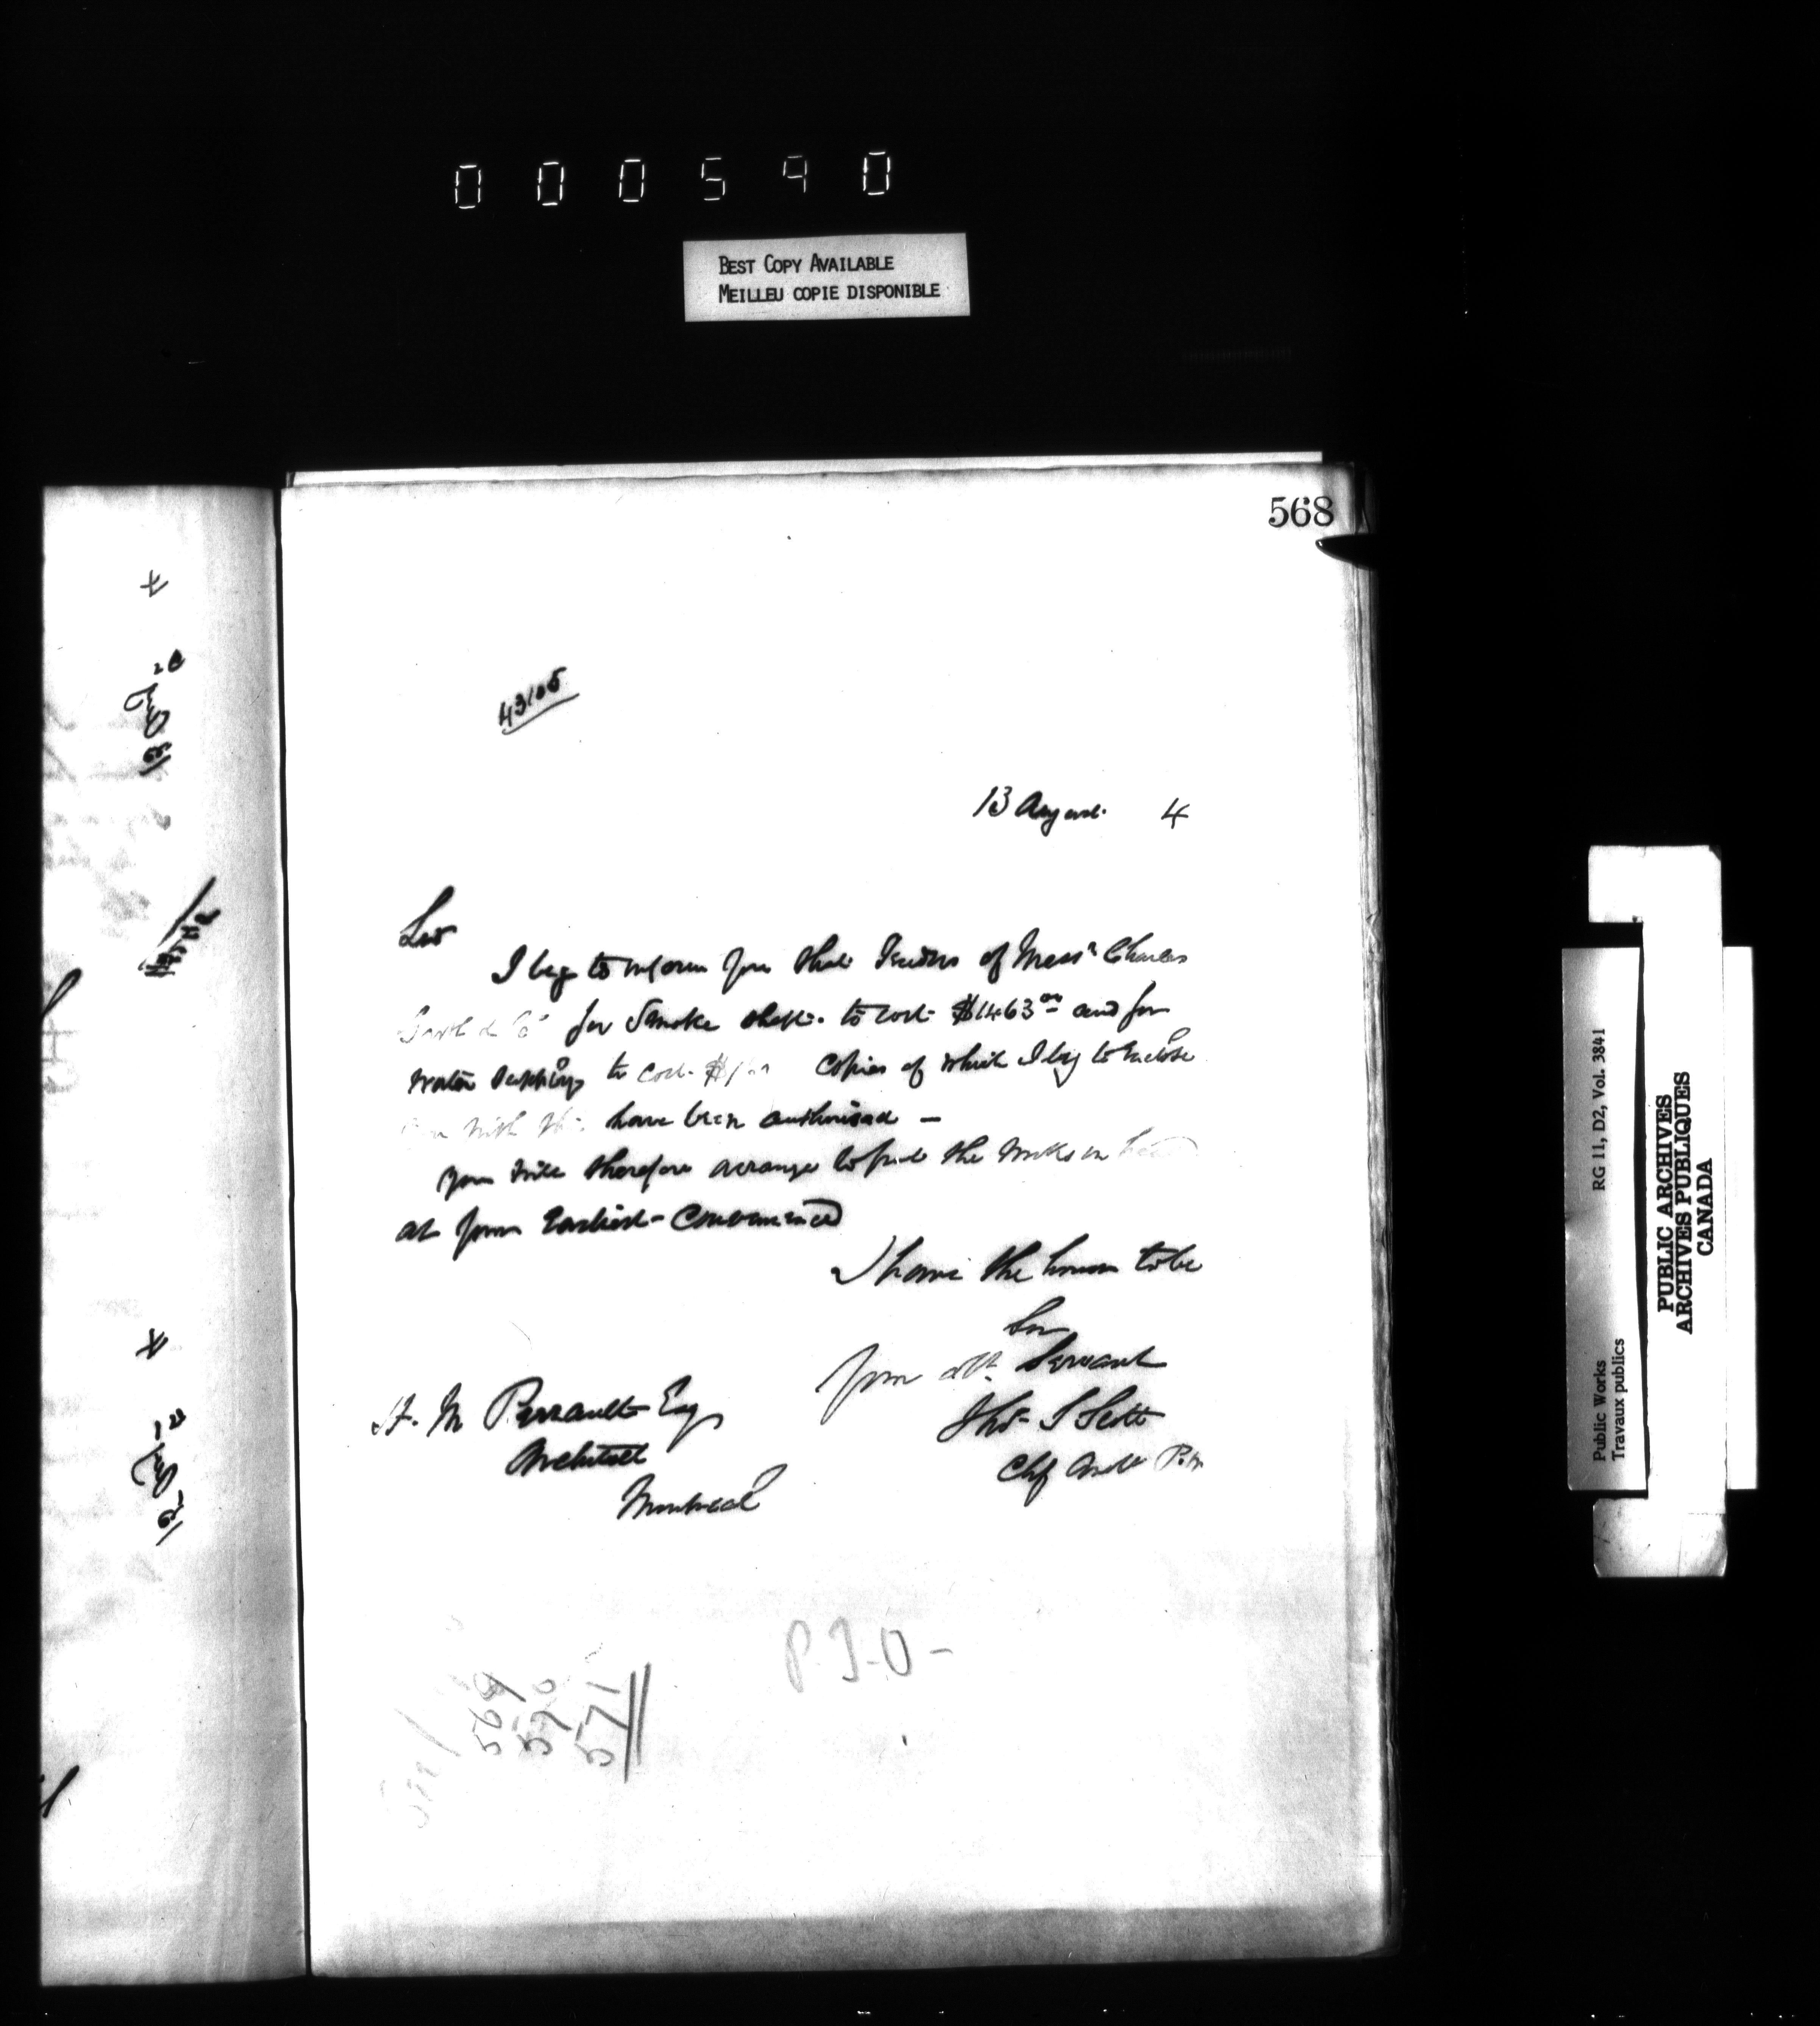 000590
BEST COPY AVAILABLE
MEILLEU COPIE DISPONIBLE
568
43105
13 August 4
Sir
I beg to inform you that Tenders of Messrs Charles
Garth & Co for Smoke shaft to cost $1463.00 and for
water supply to cost copies of which I beg to enclose
have been authorised —
you will therefore arrange to the works in
at your Earliest Convenience
I have the honor to be
Sir
your obt. Servant
Thos. S Scott
Chf Archt P.W
H. M Perrault Esq
Architect
Montreal
P.T.O-
569
570
571
Public Works RG 11, D2, Vol. 3841
Travaux publics
PUBLIC ARCHIVES
ARCHIVES PUBLIQUES
CANADA